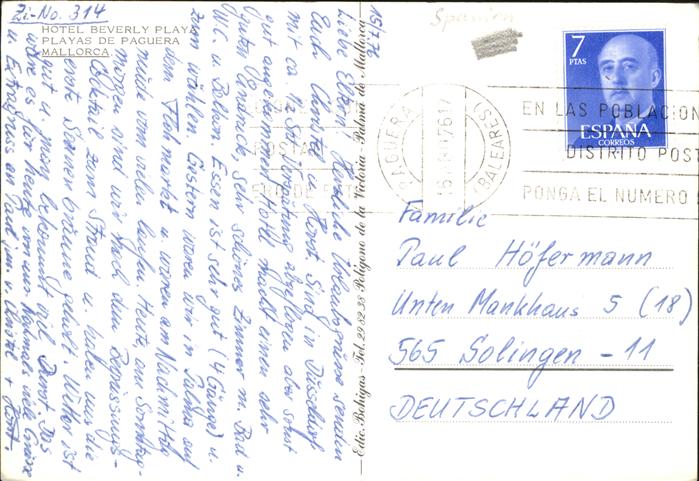 Zi-No. 314
HOTEL BEVERLY PLAYA
PLAYAS DE PAGUERA
MALLORCA
15/7.76
Liebe Eltern, herzliche Urlaubsgrüsse senden
Euch Christa u. Horst. Sind in Düsseldorf
mit ca 2 Std Verspätung abgeflogen aber sonst
gut angekommen. Hotel macht einen sehr
guten Eindruck, sehr schönes Zimmer m. Bad u.
W.C. u. Balkon. Essen ist sehr gut (4 Gänge) u.
zum wählen. Gestern waren wir in Palma auf
dem Flohmarkt u. waren am Nachmittag
müde vom vielen laufen. Heute, am Sonntag-
morgen sind wir nach dem Begrüssungs-
Cocktail zum Strand u. haben uns die
erste Sonnenbräune geholt. Wetter ist
gut u. man bekommt viel Durst. Das
wäre es für heute von uns. Nochmals viele Grüsse
u. Extragruss an
Edic. Bohigas - Tel. 29 82 38 Polígono de la Victoria - Palma de Mallorca
Spanien
7
PTAS
ESPAÑA
CORREOS
PAGUERA
(BALEARES)
EN LAS POBLACION
DISTRITO POST
PONGA EL NUMERO
Familie
Paul Höfermann
Unten Mankhaus 5 (18)
565 Solingen - 11
DEUTSCHLAND